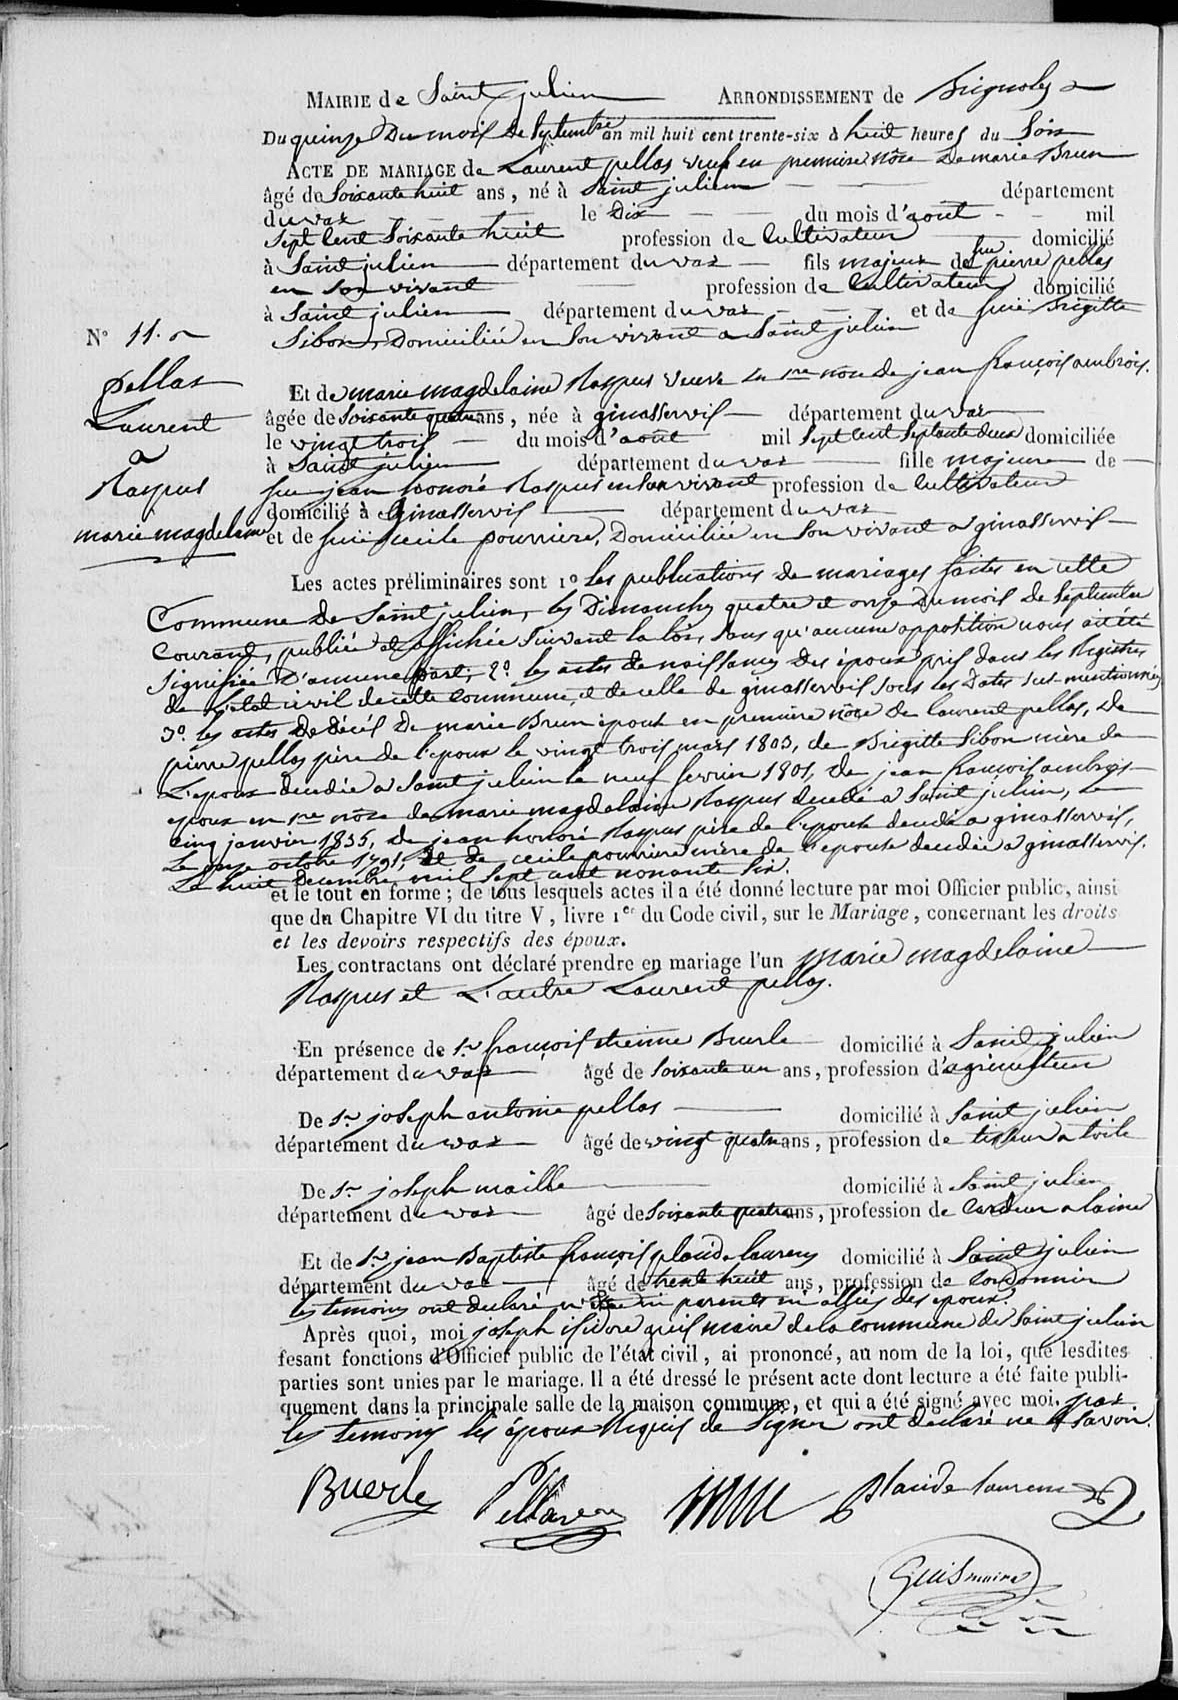 Mairie de Saint julien Arrondissement de Brignoles
Du quinze Du mois de Septembre an mil huit cent trente-six à huit heures du Soir
Acte de mariage de Laurent pellas veuf en premiere nôce De marie Brun
âgé de Soixante huit ans, né à Saint julien département
du var le Dix du mois d'aout mil
Sept Cent Soixante huit profession de Cultivateur domicilié
à Saint julien département du var fils majeur de feu pierre pellas
en son vivant profession de Cultivateur domicilié
à Saint julien département du var et de feüe Brigitte
Sibon, Domiciliée en Son vivant a Saint julien
N° 11.
pellas
Laurent
a
Raspus
marie magdelaine
Et de marie magdelaine Raspus veuve en 1re nôce De jean françois ambrois.
âgée de Soixante quatre ans, née à ginasservis département du var
le vingt trois du mois d'août mil Sept Cent Septante deux domiciliée
à Saint julien département du var fille majeure de
feu jean honoré Raspus en Son vivant profession de Cultivateur
domicilié à Ginasservis département du var
et de feüe Cecile pourriere, Domiciliée en Son vivant a ginasservis
Les actes préliminaires sont 1° Les publications de mariages faites en cette
Commune de Saint julien, les Dimanches quatre et onze Du mois de Septembre
Courant, publiée et affichée Suivant la loi, Sans qu'aucune opposition nous ait été
Signifiée D'aucune part; 2° les actes de naissances Des époux pris dans les Registres
de L'etat civil de cette Commune, et de celle de ginasservis sous les Dates Sus mentionnées
3° les actes De décès De marie Brun épouse en première nôce de laurent pellas, De
pierre pellas père de l'epoux le vingt trois mars 1803, de Brigitte Sibon mère de
L'epoux decedée a Saint julien le neuf fevrier 1801, de jean françois ambrois
epoux en 1re nôce de marie magdelaine Raspus decedé a Saint julien, le
cinq janvier 1835, de jean honoré Raspus père de l'epouse decedé a ginasservis,
Le onze octobre 1791, et de cecile pourriere mère de l'epouse decedée a ginasservis.
Le huit Decembre mil Sept cent nonante Six.
et le tout en forme; de tous lesquels actes il a été donné lecture par moi Officier public, ainsi
que du Chapitre VI du titre V, livre 1er du Code civil, sur le Mariage, concernant les droits
et les devoirs respectifs des époux.
Les contractans ont déclaré prendre en mariage l'un marie magdelaine
Raspus et L'autre Laurent pellas.
En présence de Sr françois etienne Buerle domicilié à Saint julien
département du var âgé de Soixante un ans, profession d'agriculteur
De Sr joseph antoine pellas domicilié à Saint julien
département du var âgé de vingt quatre ans, profession de tisseur a toile
De Sr joseph maille domicilié à Saint julien
département du var âgé de Soixante quatre ans, profession de Cardeur a laine
Et de Sr jean Baptiste françois plaude laurens domicilié à Saint julien
département du var âgé de trente huit ans, profession de Cordonnier
les temoins ont declaré n'être ni parents ni alliés des epoux.
Après quoi, moi joseph isidore guis maire de la commune de Saint julien
fesant fonctions d'Officier public de l'état civil, ai prononcé, au nom de la loi, que lesdites
parties sont unies par le mariage. Il a été dressé le présent acte dont lecture a été faite publi-
quement dans la principale salle de la maison commune, et qui a été signé avec moi, par
les temoins les époux Requis de Signer ont declaré ne le Savoir.
Buerle Pellas plaude laurens
Guis maire